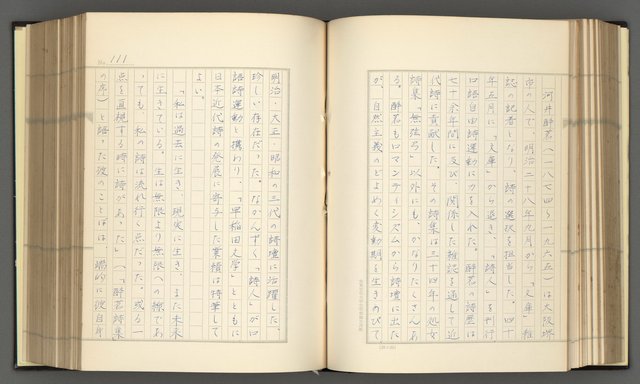 河井酔茗（一八七四～一九六五）は大阪堺
市の人で、明治二十八年九月から「文庫」雑
誌の記者となり、詩の選択を担当した。四十
年五月に「文庫」から退き、「詩人」を刊行
口語自由詩運動に力を入れた。酔茗の詩歴は
七十余年間に及び、関係した雑誌を通して近
代詩に貢献した。その詩集は三十四年の処女
詩集「無弦弓」以外にも、かなりたくさんあ
る。酔茗もロマンティシズムから詩壇に出た
が、自然主義のどよめく変動期を生きのびて
No. 111
明治・大正・昭和の三代の詩壇に活躍した、
珍しい存在だった。なかんずく、「詩人」が口
語詩運動と携わり、「早稲田文学」とともに
日本近代詩の発展に寄与した業績は特筆して
よい。
「私は過去に生き、現実に生き、また未来
に生きている。生は無限より無限への旅であ
っても、私の詩は流れ行く点だった。或る一
点を直視する時に詩があった」（「酔茗詩集」
の序）と語った彼のことばは、端的に彼自身